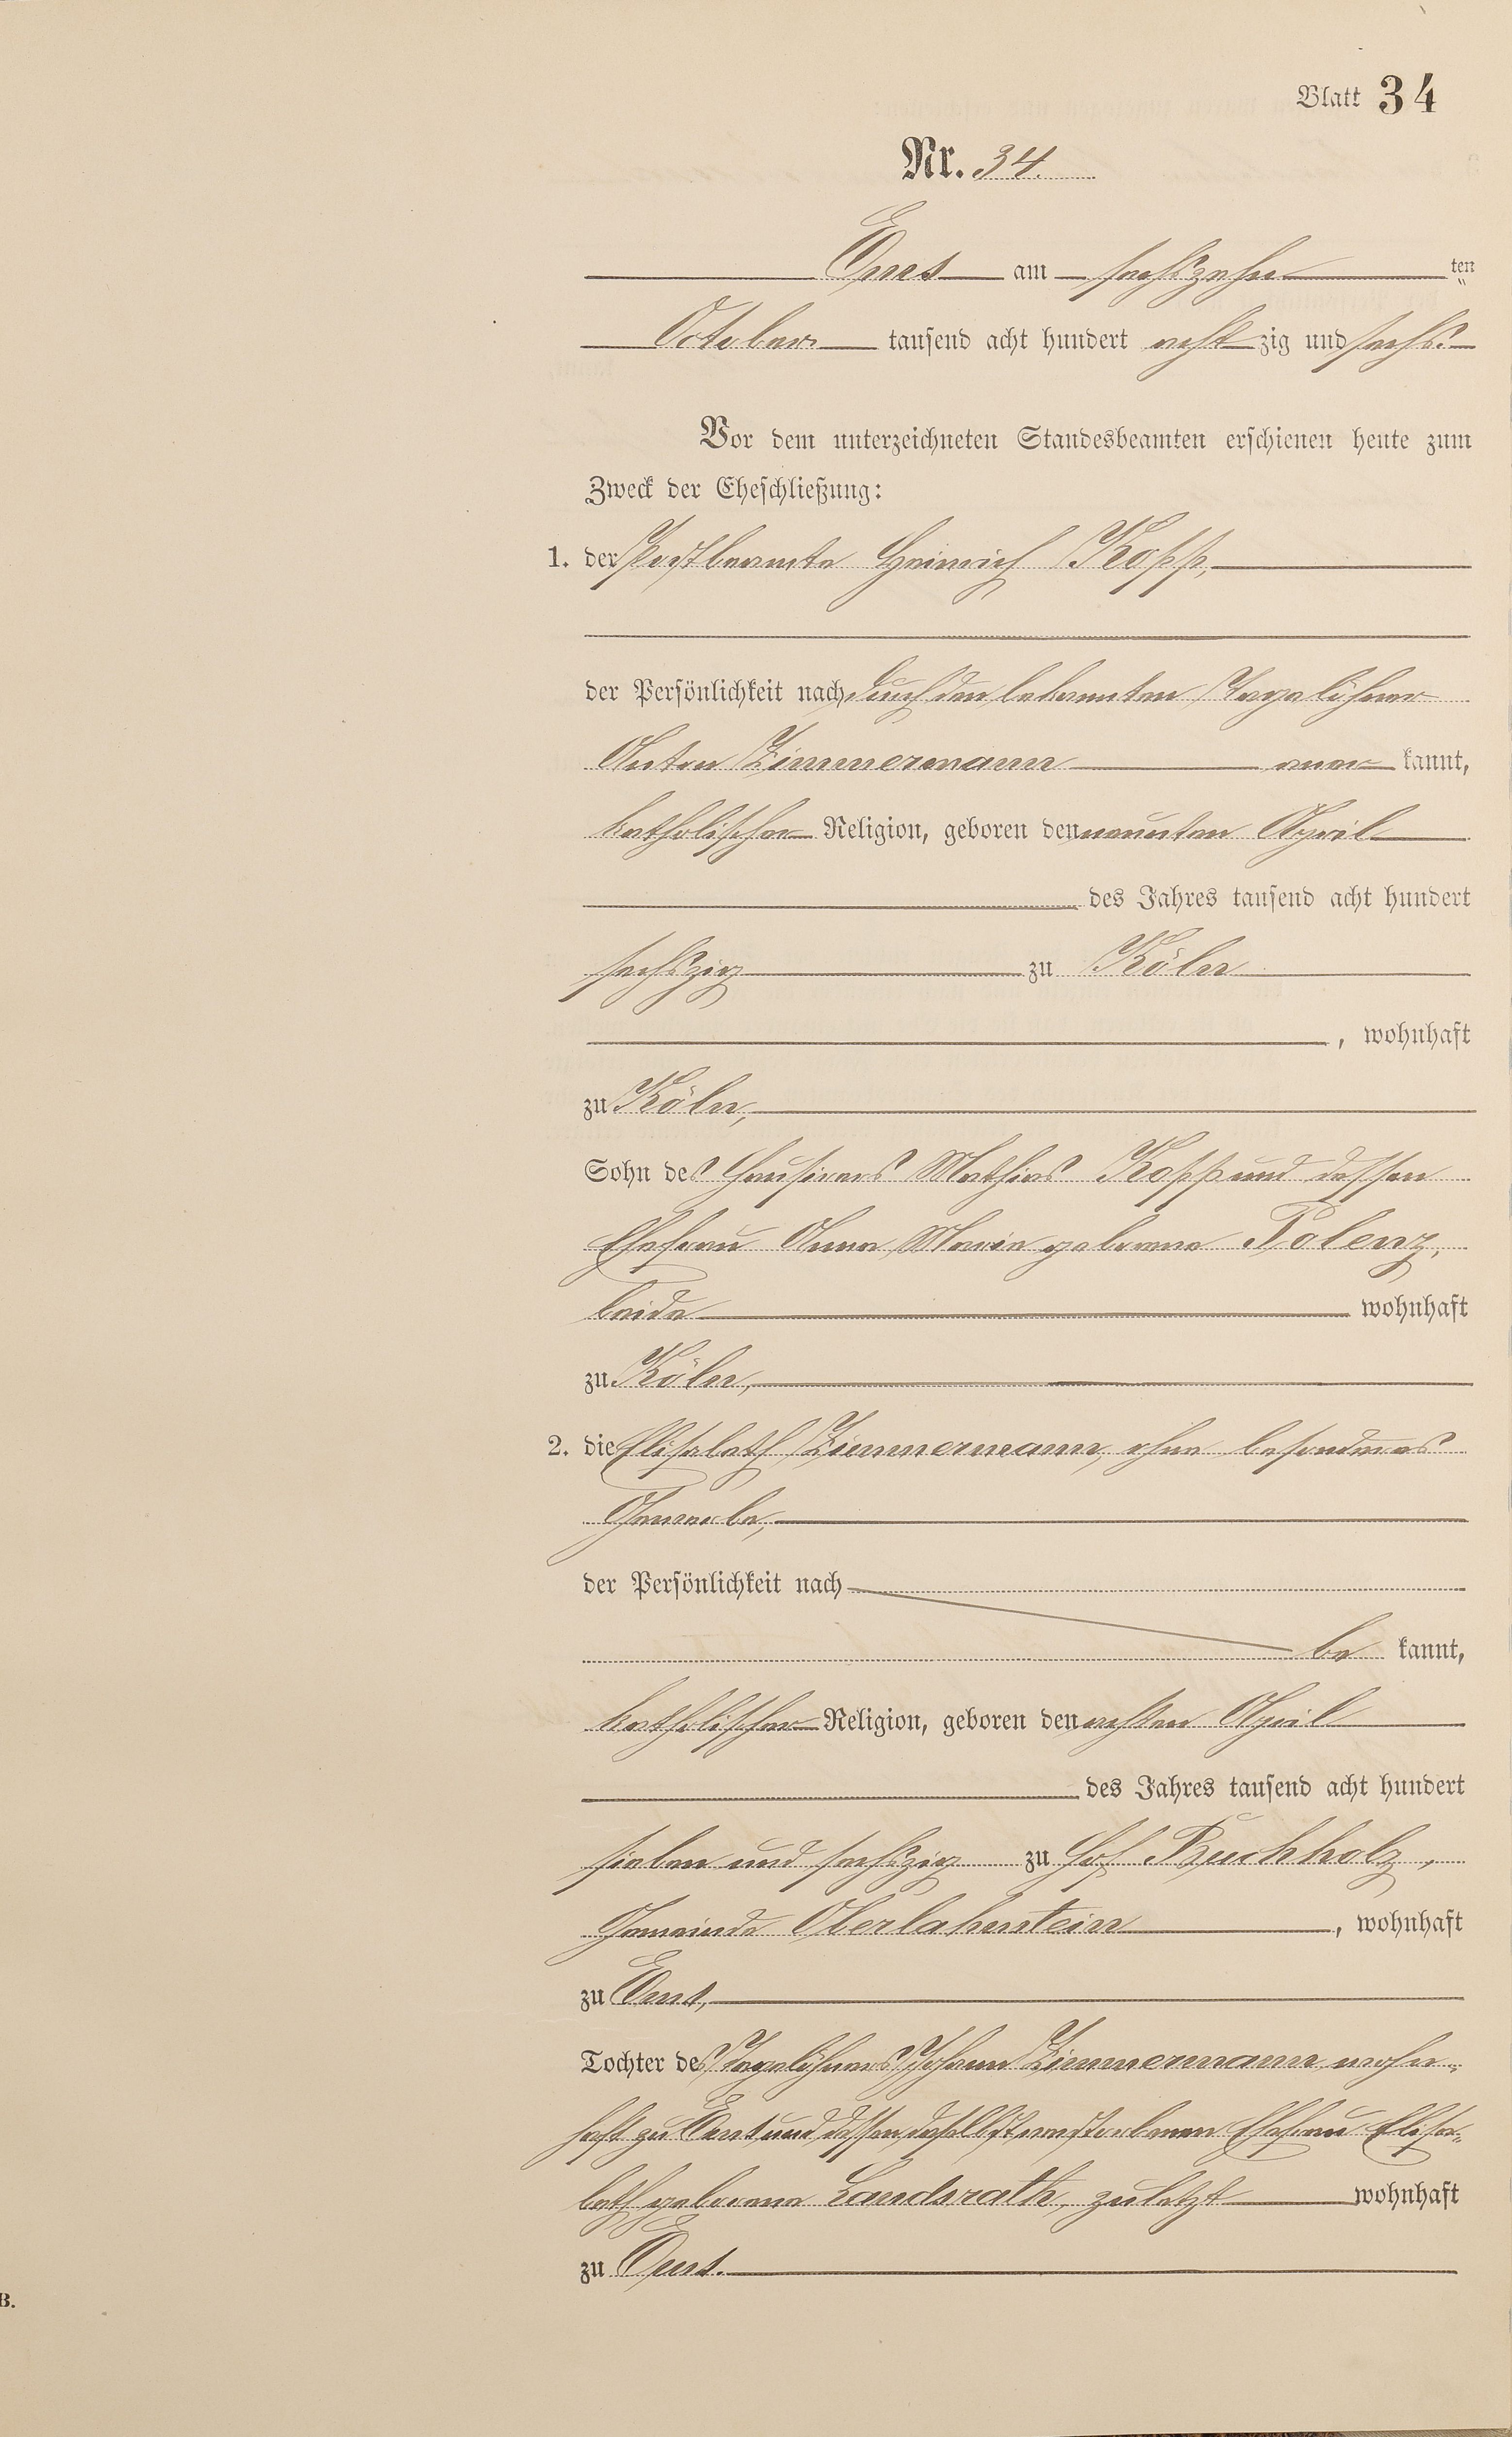 Blatt 34
Nr. 34.
Ems am sechszehn ten
October tausend acht hundert acht zig und sechs.
Vor dem unterzeichneten Standesbeamten erschienen heute zum
Zweck der Eheschließung:
1. der Postbeamte Heinrich Kopp,
der Persönlichkeit nach durch den bekannten Tagelöhner
Anton Zimmermann aner kannt,
katholischer Religion, geboren den neunten April
des Jahres tausend acht hundert
sechszig zu Köln
, wohnhaft
zu Köln,
Sohn des Hausirers Mathias Kopp und dessen
Ehefrau Anna Maria geborene Polenz,
beide wohnhaft
zu Köln,
2. die Elisabeth Zimmermann, ohne besonderes
Gewerbe,
der Persönlichkeit nach
be kannt,
katholischer Religion, geboren den achten April
des Jahres tausend acht hundert
sieben und sechszig zu Hof Buchholz,
Gemeinde Oberlahnstein, wohnhaft
zu Ems,
Tochter des Tagelöhners Johann Zimmermann wohn-
haft zu Ems und dessen daselbst verstorbenen Ehefrau Elisa-
beth geborene Landsrath, zuletzt wohnhaft
zu Ems.
B.